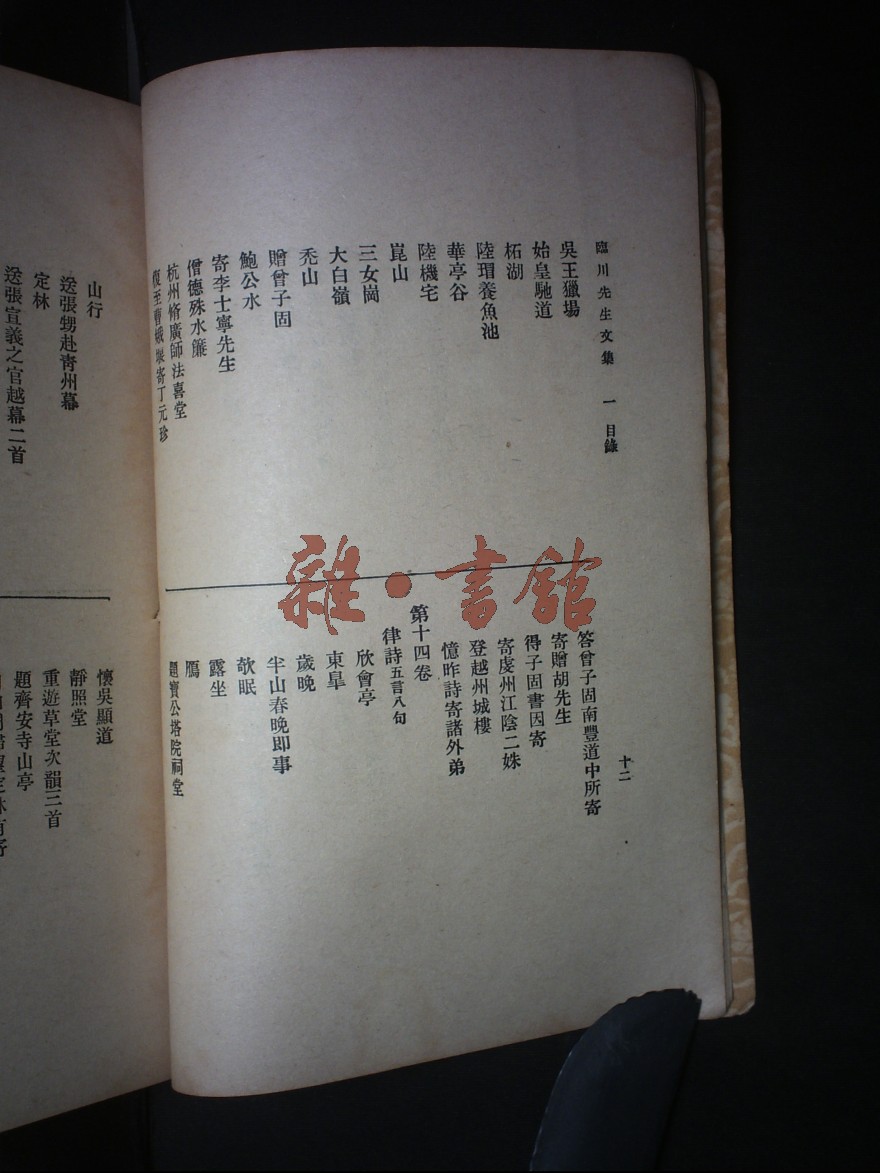 臨川先生文集 一 目錄
十二
吳王獵場
始皇馳道
柘湖
陸瑁養魚池
華亭谷
陸機宅
崑山
三女崗
大白嶺
禿山
贈曾子固
鮑公水
寄李士寧先生
僧德殊水簾
杭州脩廣師法喜堂
復至曹娥堰寄丁元珍
答曾子固南豐道中所寄
寄贈胡先生
得子固書因寄
寄虔州江陰二姝
登越州城樓
憶昨詩寄諸外弟
第十四卷
律詩五言八句
欣會亭
東皐
歲晚
半山春晚即事
欹眠
露坐
鴈
題寶公塔院祠堂
山行
送張甥赴青州幕
定林
送張宣義之官越幕二首
懷吳顯道
靜照堂
重遊草堂次韻三首
題齊安寺山亭
雜·書館